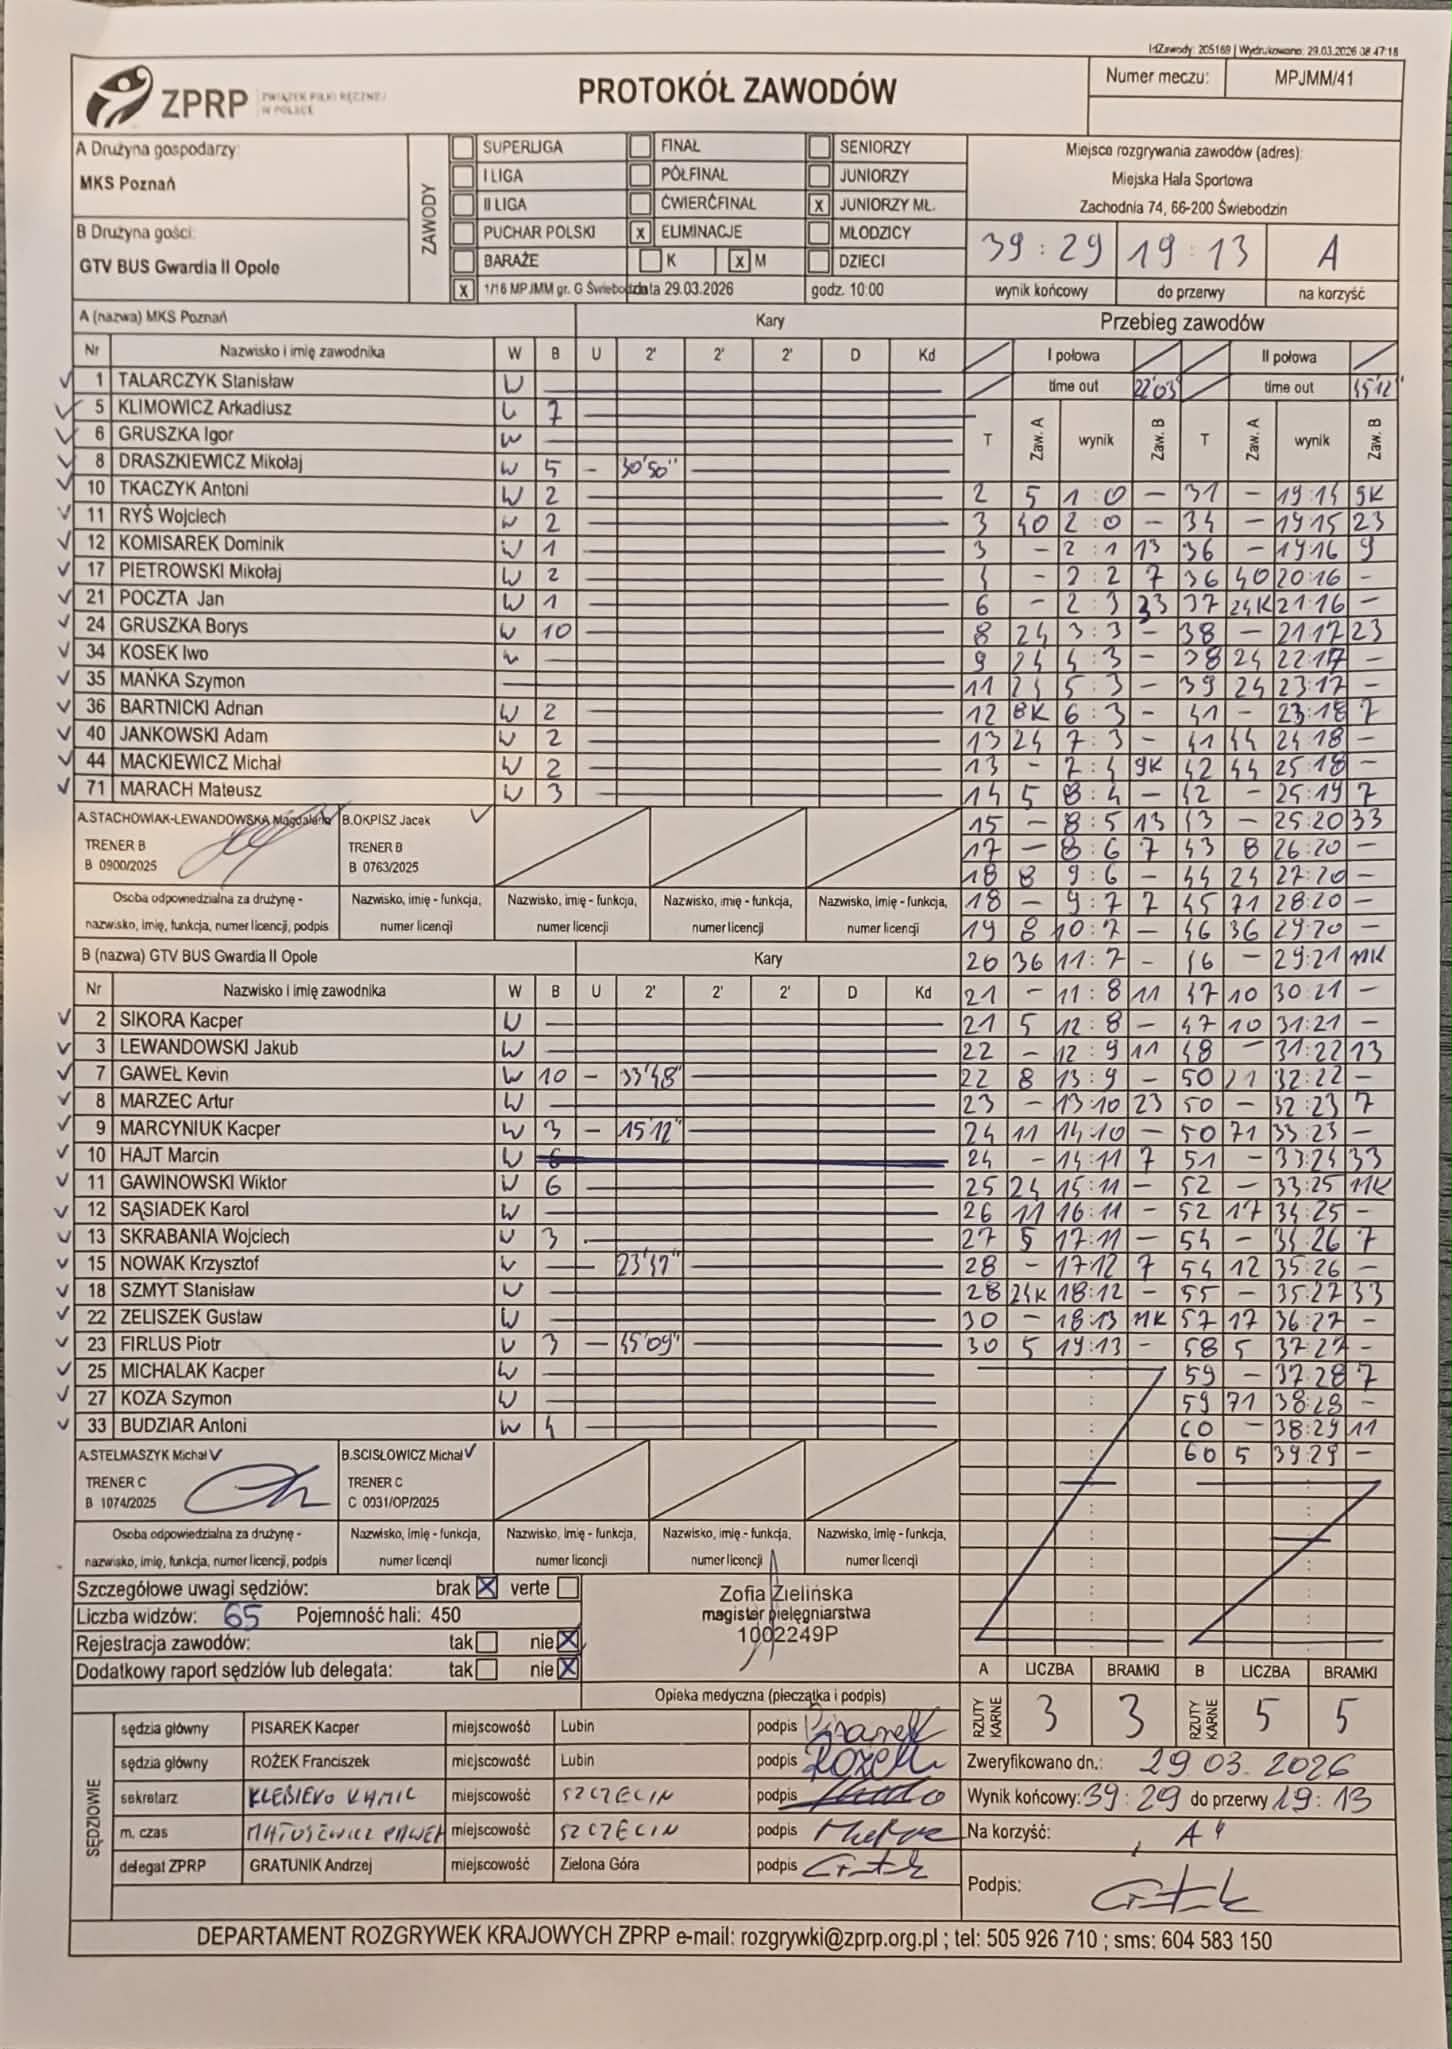 IdZawody: 205169 | Wydrukowano: 29.03.2026 08:47:18
ZPRP ZWIĄZEK PIŁKI RĘCZNEJ W POLSCE
PROTOKÓŁ ZAWODÓW
Numer meczu: MPJMM/41
A Drużyna gospodarzy:
MKS Poznań
B Drużyna gości:
GTV BUS Gwardia II Opole
ZAWODY
SUPERLIGA FINAŁ SENIORZY
I LIGA PÓŁFINAŁ JUNIORZY
II LIGA ĆWIERĆFINAŁ x JUNIORZY MŁ.
PUCHAR POLSKI x ELIMINACJE MŁODZICY
BARAŻE K x M DZIECI
x 1/16 MPJMM gr. G Świebodzin data 29.03.2026 godz. 10:00
Miejsce rozgrywania zawodów (adres):
Miejska Hala Sportowa
Zachodnia 74, 66-200 Świebodzin
39:29 19:13 A
wynik końcowy do przerwy na korzyść
A (nazwa) MKS Poznań Kary
Nr Nazwisko i imię zawodnika W B U 2' 2' 2' D Kd
1 TALARCZYK Stanisław W
5 KLIMOWICZ Arkadiusz W 7
6 GRUSZKA Igor W
8 DRASZKIEWICZ Mikołaj W 5 - 30'50"
10 TKACZYK Antoni W 2
11 RYŚ Wojciech W 2
12 KOMISAREK Dominik W 1
17 PIETROWSKI Mikołaj W 2
21 POCZTA Jan W 1
24 GRUSZKA Borys W 10
34 KOSEK Iwo W
35 MAŃKA Szymon
36 BARTNICKI Adrian W 2
40 JANKOWSKI Adam W 2
44 MACKIEWICZ Michał W 2
71 MARACH Mateusz W 3
A.STACHOWIAK-LEWANDOWSKA Magdalena
TRENER B
B 0900/2025
B.OKPISZ Jacek
TRENER B
B 0763/2025
Osoba odpowiedzialna za drużynę - nazwisko, imię, funkcja, numer licencji, podpis
Nazwisko, imię - funkcja, numer licencji
Nazwisko, imię - funkcja, numer licencji
Nazwisko, imię - funkcja, numer licencji
Nazwisko, imię - funkcja, numer licencji
B (nazwa) GTV BUS Gwardia II Opole Kary
Nr Nazwisko i imię zawodnika W B U 2' 2' 2' D Kd
2 SIKORA Kacper W
3 LEWANDOWSKI Jakub W
7 GAWEŁ Kevin W 10 - 33'48"
8 MARZEC Artur W
9 MARCYNIUK Kacper W 3 - 15'12"
10 HAJT Marcin W
11 GAWINOWSKI Wiktor W 6
12 SĄSIADEK Karol W
13 SKRABANIA Wojciech W 3
15 NOWAK Krzysztof W 23'47"
18 SZMYT Stanisław W
22 ZELISZEK Gustaw W
23 FIRLUS Piotr W 3 - 45'09"
25 MICHALAK Kacper W
27 KOZA Szymon W
33 BUDZIAR Antoni W 4
A.STELMASZYK Michał
TRENER C
B 1074/2025
B.SCISŁOWICZ Michał
TRENER C
C 0031/OP/2025
Osoba odpowiedzialna za drużynę - nazwisko, imię, funkcja, numer licencji, podpis
Nazwisko, imię - funkcja, numer licencji
Nazwisko, imię - funkcja, numer licencji
Nazwisko, imię - funkcja, numer licencji
Nazwisko, imię - funkcja, numer licencji
Przebieg zawodów
I połowa II połowa
time out 22'03" time out 45'12"
T Zaw. A wynik Zaw. B T Zaw. A wynik Zaw. B
2 5 1:0 - 31 - 19:14 9K
3 40 2:0 - 34 - 19:15 23
3 - 2:1 13 36 - 19:16 9
4 - 2:2 7 36 40 20:16 -
6 - 2:3 33 37 24K 21:16 -
8 24 3:3 - 38 - 21:17 23
9 24 4:3 - 38 24 22:17 -
11 24 5:3 - 39 24 23:17 -
12 8K 6:3 - 41 - 23:18 7
13 24 7:3 - 41 44 24:18 -
13 - 7:4 9K 42 44 25:18 -
14 5 8:4 - 42 - 25:19 7
15 - 8:5 13 43 - 25:20 33
17 - 8:6 7 43 8 26:20 -
18 8 9:6 - 44 24 27:20 -
18 - 9:7 7 45 71 28:20 -
19 8 10:7 - 46 36 29:20 -
20 36 11:7 - 46 - 29:21 11K
21 - 11:8 11 47 10 30:21 -
21 5 12:8 - 47 10 31:21 -
22 - 12:9 11 48 - 31:22 13
22 8 13:9 - 50 21 32:22 -
23 - 13:10 23 50 - 32:23 7
24 11 14:10 - 50 71 33:23 -
24 - 14:11 7 51 - 33:24 33
25 24 15:11 - 52 - 33:25 11K
26 11 16:11 - 52 17 34:25 -
27 5 17:11 - 54 - 34:26 7
28 - 17:12 7 54 12 35:26 -
28 24K 18:12 - 55 - 35:27 33
30 - 18:13 11K 57 17 36:27 -
30 5 19:13 - 58 5 37:27 -
59 - 37:28 7
59 71 38:28 -
60 - 38:29 11
60 5 39:29 -
Szczegółowe uwagi sędziów: brak x verte
Liczba widzów: 65 Pojemność hali: 450
Rejestracja zawodów: tak nie x
Dodatkowy raport sędziów lub delegata: tak nie x
Zofia Zielińska
magister pielęgniarstwa
1002249P
Opieka medyczna (pieczątka i podpis)
A LICZBA BRAMKI B LICZBA BRAMKI
RZUTY KARNE 3 3 RZUTY KARNE 5 5
SĘDZIOWIE
sędzia główny PISAREK Kacper miejscowość Lubin podpis Pisarek
sędzia główny ROŻEK Franciszek miejscowość Lubin podpis Rożek
sekretarz KLEBIEVO KAMIL miejscowość SZCZECIN podpis
m. czas MATUSEWICZ PAWEŁ miejscowość SZCZECIN podpis
delegat ZPRP GRATUNIK Andrzej miejscowość Zielona Góra podpis
Zweryfikowano dn.: 29.03.2026
Wynik końcowy: 39:29 do przerwy 19:13
Na korzyść: „A"
Podpis:
DEPARTAMENT ROZGRYWEK KRAJOWYCH ZPRP e-mail: rozgrywki@zprp.org.pl ; tel: 505 926 710 ; sms: 604 583 150